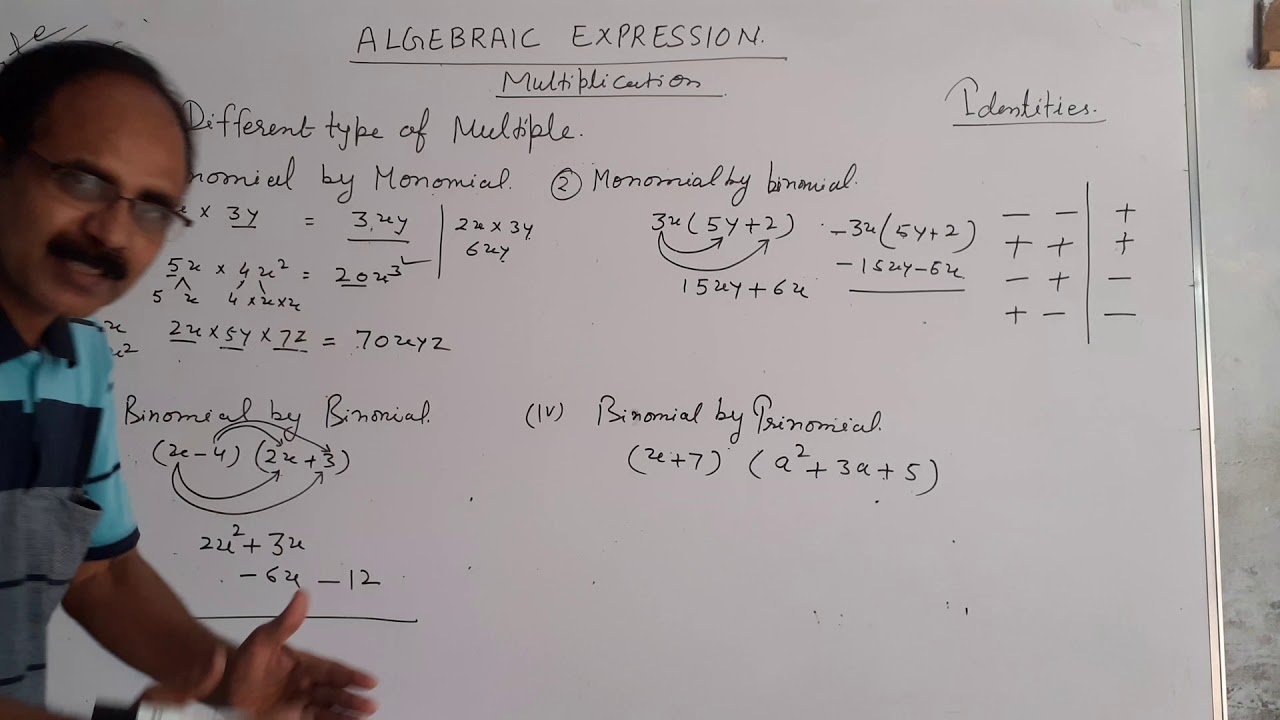 ALGEBRAIC EXPRESSION.
Multiplication
Identities.
Different type of Multiple.
nomial by Monomial.
x × 3y = 3xy
2x × 3y
6xy
5x × 4x² = 20x³
5 x 4 × x × x
x
x²
2x × 5y × 7z = 70xyz
② Monomial by binomial.
3x(5y+2) -3x(5y+2)
15xy+6x -15xy-6x
- - | +
+ + | +
- + | -
+ - | -
Binomial by Binomial.
(x-4) (2x+3)
2x²+3x
-6x -12
(IV) Binomial by Trinomial.
(x+7) (a²+3a+5)